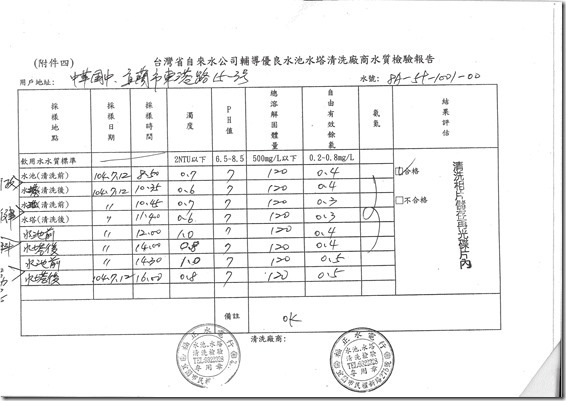 (附件四)
台灣省自來水公司輔導優良水池水塔清洗廠商水質檢驗報告
用戶地址: 中華國中、宜蘭市東港路15-3號 水號: 8A-54-1001-00
採樣地點 採樣日期 採樣時間 濁度 PH值 總溶解固體量 自由有效餘氯 氨氮 結果評估
飲用水水質標準 2NTU以下 6.5-8.5 500mg/L以下 0.2-0.8mg/L
水池(清洗前) 104.7.12 8.50 0.7 7 120 0.4
水塔(清洗後) 104.7.12 10.35 0.6 7 120 0.4
(清洗前) 〃 10.45 0.7 7 120 0.3
水塔(清洗後) 〃 11.40 0.6 7 120 0.3
水池前 〃 12.00 1.0 7 120 0.4
水塔後 〃 14.00 0.8 7 120 0.4
水池前 〃 14.30 1.0 7 120 0.5
水塔後 104.7.12 16.00 0.8 7 120 0.5
合格
不合格
清洗相片儲存再光碟片內
備註 OK
清洗廠商:
水池.水塔
清洗檢驗
TEL:9322328
專用章
水池.水塔
清洗檢驗
TEL:9322328
專用章